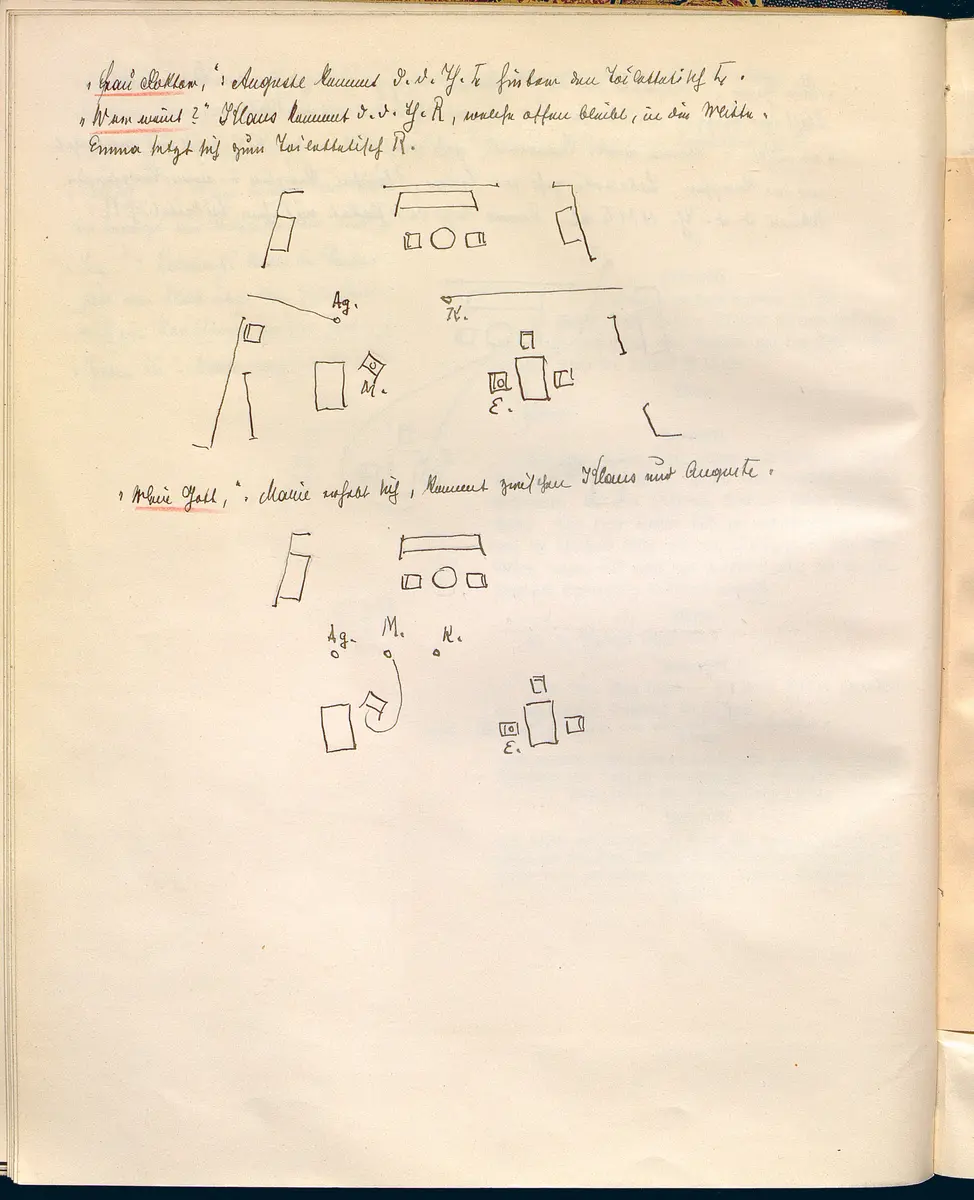 „Frau Doktor,“: Auguste kommt d. d. Th. L hinter den Toilettetisch L.
„Wer weint?“ Klaus kommt d. d. Th. R, welche offen bleibt, in die Mitte.
Emma setzt sich zum Toilettetisch R.
Ag.
K.
M.
E.
„Mein Gott,“. Marie erhebt sich, kommt zwischen Klaus und Auguste.
Ag. M. K.
E.